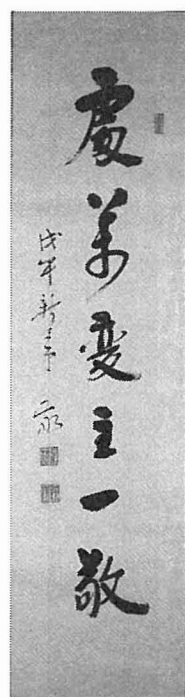 處萬變主一敬
戊午新春